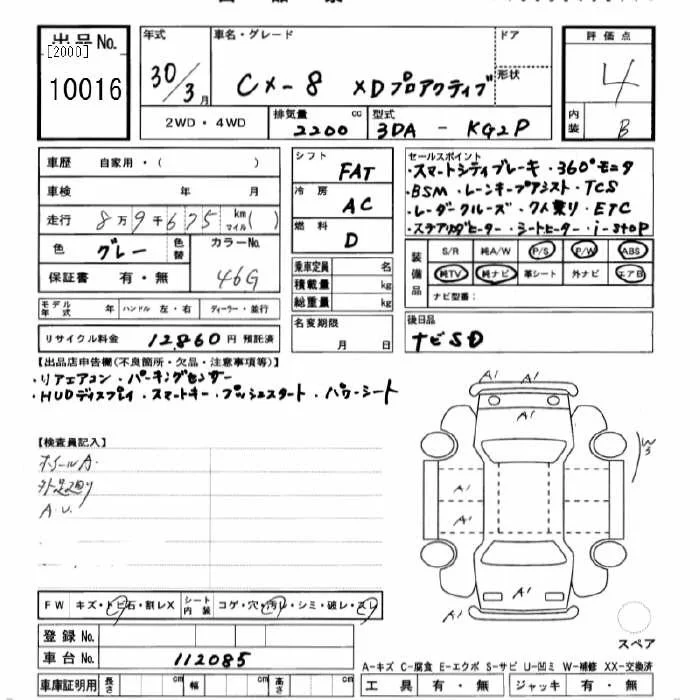 出品No.
[2000]
10016
年式
30/3月
車名・グレード
CX-8 XDプロアクティブ
ドア
形状
評価点
4
内装
B
2WD・4WD
排気量 cc
2200
型式
3DA - KG2P
車歴 自家用・( )
車検 年 月
走行 8万9千675 km マイル( )
色 グレー 色替
カラーNo. 46G
保証書 有・無
モデル年式 年
ハンドル 左・右
ディーラー・並行
リサイクル料金 12,860 円 預託済
シフト FAT
冷房 AC
燃料 D
乗車定員 名
積載量 kg
総重量 kg
名変期限
月 日
セールスポイント
・スマートシティブレーキ・360°モニタ
・BSM・レーンキープアシスト・TCS
・レーダークルーズ・7人乗り・ETC
・ステアリングヒーター・シートヒーター・i-stop
装備品
S/R 純A/W P/S P/W ABS
純TV 純ナビ 革シート 外ナビ エアB
ナビ型番:
後日品
ナビSD
【出品店申告欄(不良箇所・欠品・注意事項等)】
・リアエアコン・パーキングセンサー
・HUDディスプレイ・スマートキー・プッシュスタート・パワーシート
【検査員記入】
ホイールA.
A.U.
A1 A1
A1
W5
A1
A1
A1
A1
FW キズ・トビ石・割レX
シート内装 コゲ・穴・汚レ・シミ・破レ・スレ
登録No.
車台No. 112085
車庫証明用 長さ cm 幅 cm 高さ cm
スペア
A-キズ C-腐食 E-エクボ S-サビ U-凹ミ W-補修 XX-交換済
工具 有・無 ジャッキ 有・無